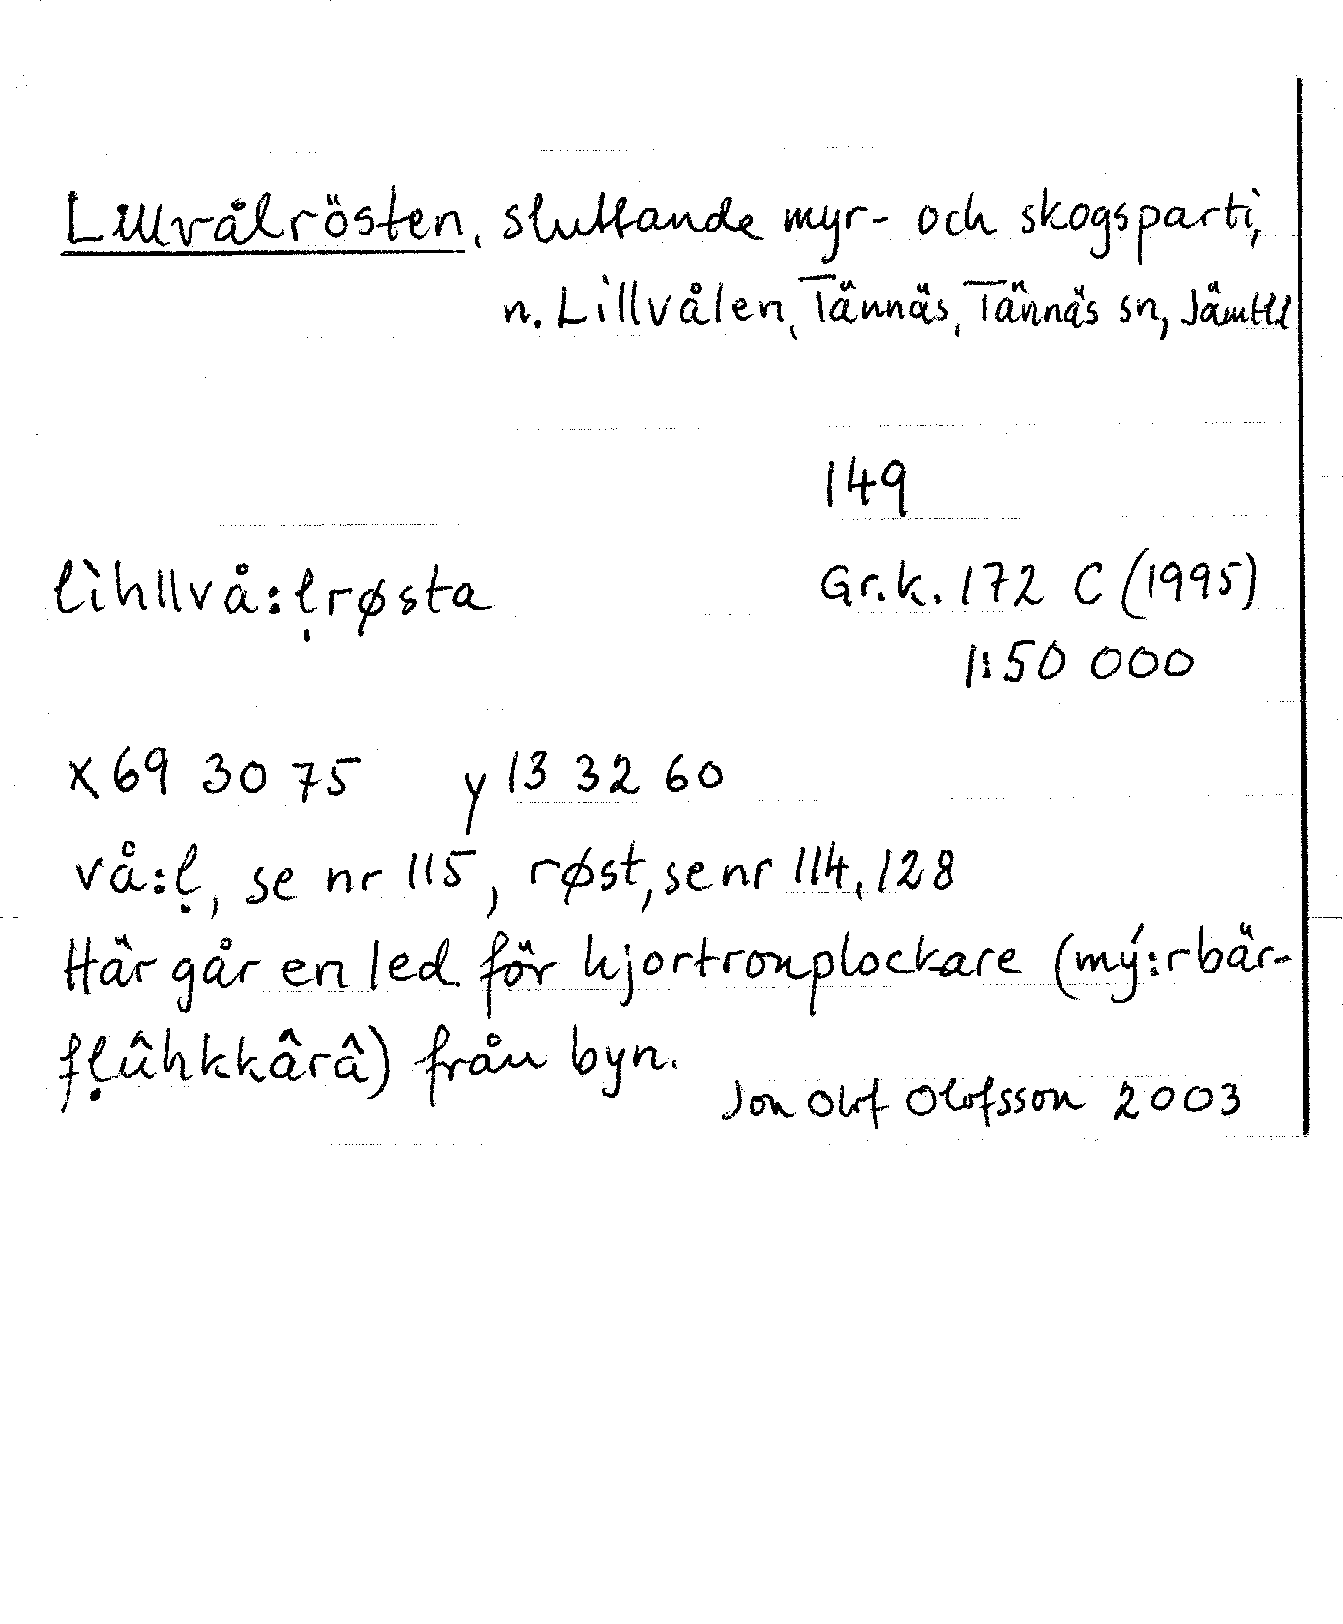 Lillvålrösten, sluttande myr- och skogsparti,
n. Lillvålen, Tännäs, Tännäs sn, Jämtll
149
lìhllvå:ḷrøsta
Gr.k. 172 C (1995)
1:50 000
x 69 30 75 y 13 32 60
vå:ḷ, se nr 115, røst, se nr 114, 128
Här går en led för hjortronplockare (mý:rbär-
fḷûhkkârâ) från byn.
Jon Olof Olofsson 2003